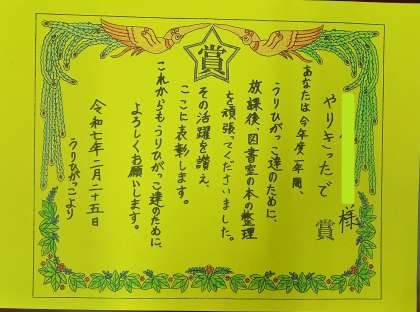 賞
やりきったで賞
様
あなたは今年度一年間、
うりひがっこ達のために、
放課後、図書室の本の整理
を頑張ってくださいました。
その活躍を讃え、
ここに表彰します。
これからも、うりひがっこ達のために、
よろしくお願いします。
令和七年二月二十五日
うりひがっこより